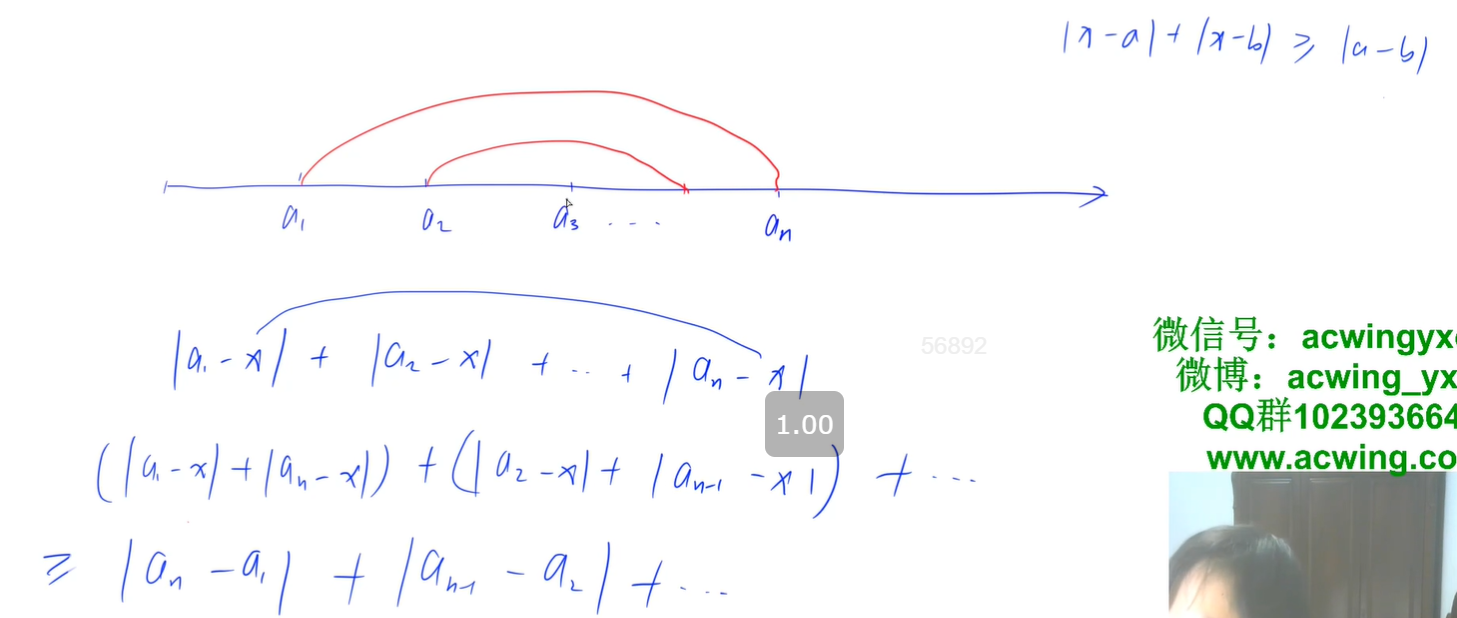 |x-a|+|x-b| ≥ |a-b|
a₁ a₂ a₃ ... aₙ
|a₁-x| + |a₂-x| + ... + |aₙ-x|
56892
1.00
(|a₁-x|+|aₙ-x|) + (|a₂-x|+|aₙ₋₁-x|) + ...
≥ |aₙ-a₁| + |aₙ₋₁-a₂| + ...
微信号：acwingyx
微博：acwing_yx
QQ群102393664
www.acwing.co